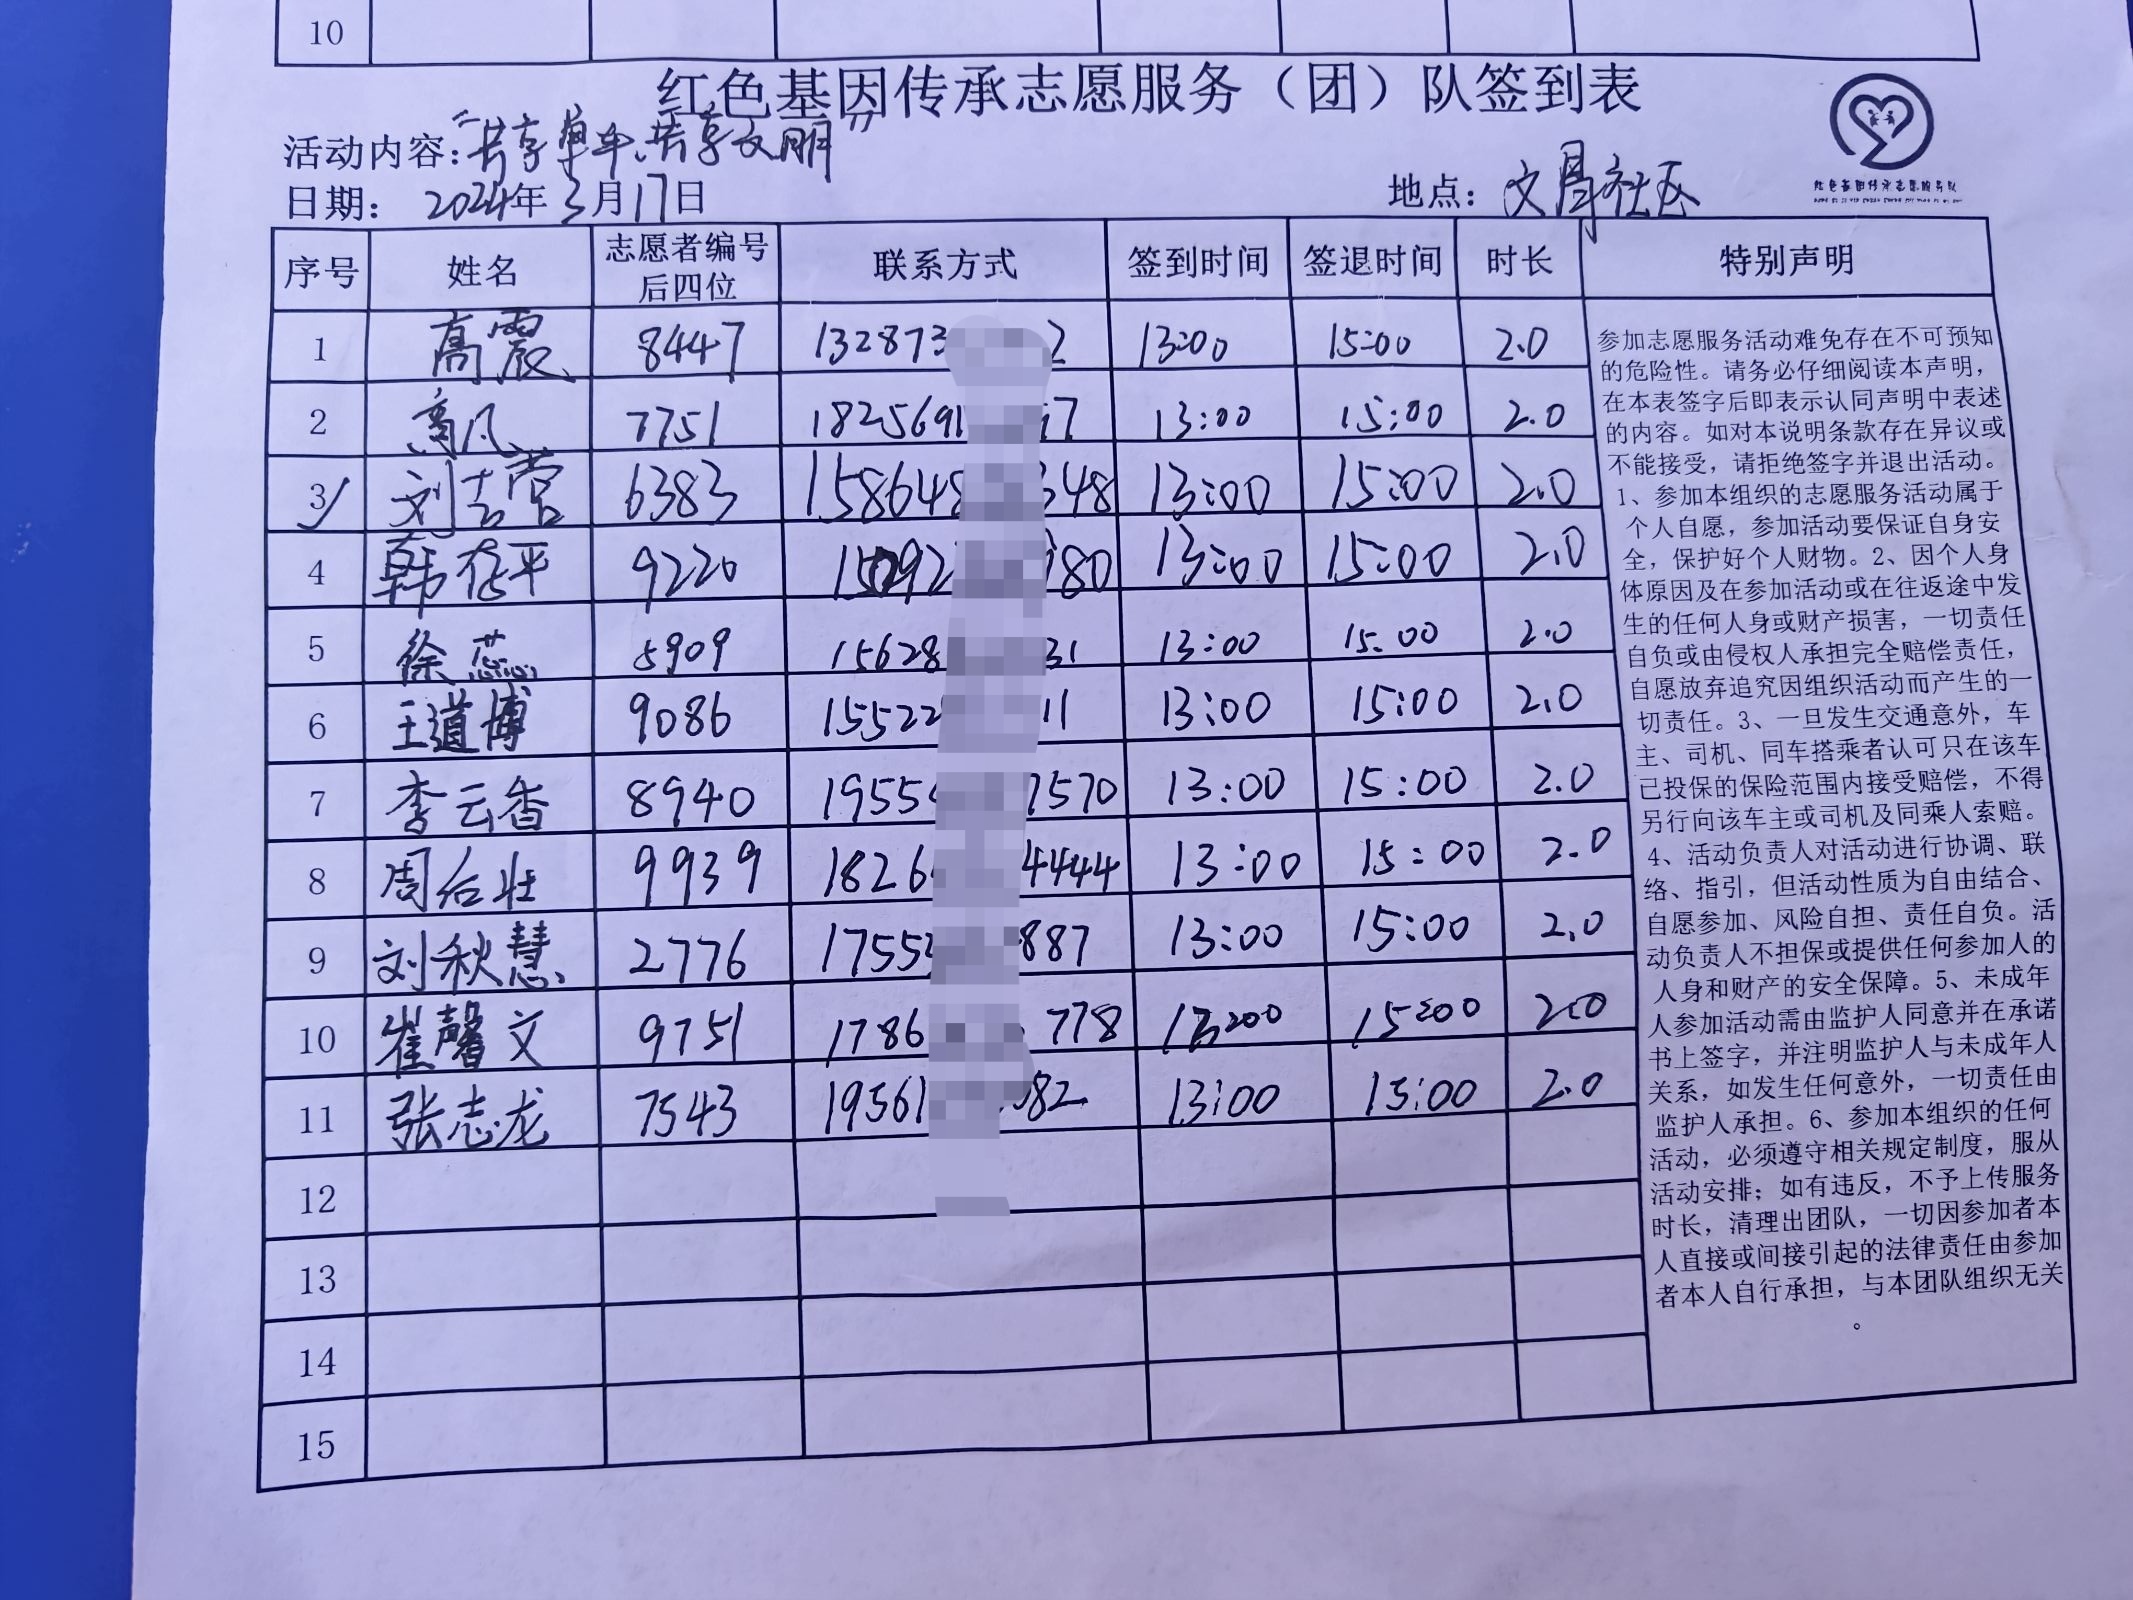 10
红色基因传承志愿服务（团）队签到表
活动内容：“共享单车、共享文明”
日期： 2024年3月17日 地点： 文昌社区
序号 姓名 志愿者编号后四位 联系方式 签到时间 签退时间 时长 特别声明
1 高震 8447 132873 2 13:00 15:00 2.0
2 高凡 7751 1825691 7 13:00 15:00 2.0
3 刘吉营 6383 158648 348 13:00 15:00 2.0
4 韩存平 9220 15092 180 13:00 15:00 2.0
5 徐蕊 5909 15628 31 13:00 15:00 2.0
6 王道博 9086 15522 11 13:00 15:00 2.0
7 李云香 8940 1955 7570 13:00 15:00 2.0
8 周后壮 9939 1826 4444 13:00 15:00 2.0
9 刘秋慧 2776 1755 887 13:00 15:00 2.0
10 崔馨文 9751 1786 778 13:00 15:00 2.0
11 张志龙 7543 19561 82 13:00 15:00 2.0
12
13
14
15
参加志愿服务活动难免存在不可预知
的危险性。请务必仔细阅读本声明，
在本表签字后即表示认同声明中表述
的内容。如对本说明条款存在异议或
不能接受，请拒绝签字并退出活动。
1、参加本组织的志愿服务活动属于
个人自愿，参加活动要保证自身安
全，保护好个人财物。2、因个人身
体原因及在参加活动或在往返途中发
生的任何人身或财产损害，一切责任
自负或由侵权人承担完全赔偿责任，
自愿放弃追究因组织活动而产生的一
切责任。3、一旦发生交通意外，车
主、司机、同车搭乘者认可只在该车
已投保的保险范围内接受赔偿，不得
另行向该车主或司机及同乘人索赔。
4、活动负责人对活动进行协调、联
络、指引，但活动性质为自由结合、
自愿参加、风险自担、责任自负。活
动负责人不担保或提供任何参加人的
人身和财产的安全保障。5、未成年
人参加活动需由监护人同意并在承诺
书上签字，并注明监护人与未成年人
关系，如发生任何意外，一切责任由
监护人承担。6、参加本组织的任何
活动，必须遵守相关规定制度，服从
活动安排；如有违反，不予上传服务
时长，清理出团队，一切因参加者本
人直接或间接引起的法律责任由参加
者本人自行承担，与本团队组织无关
。